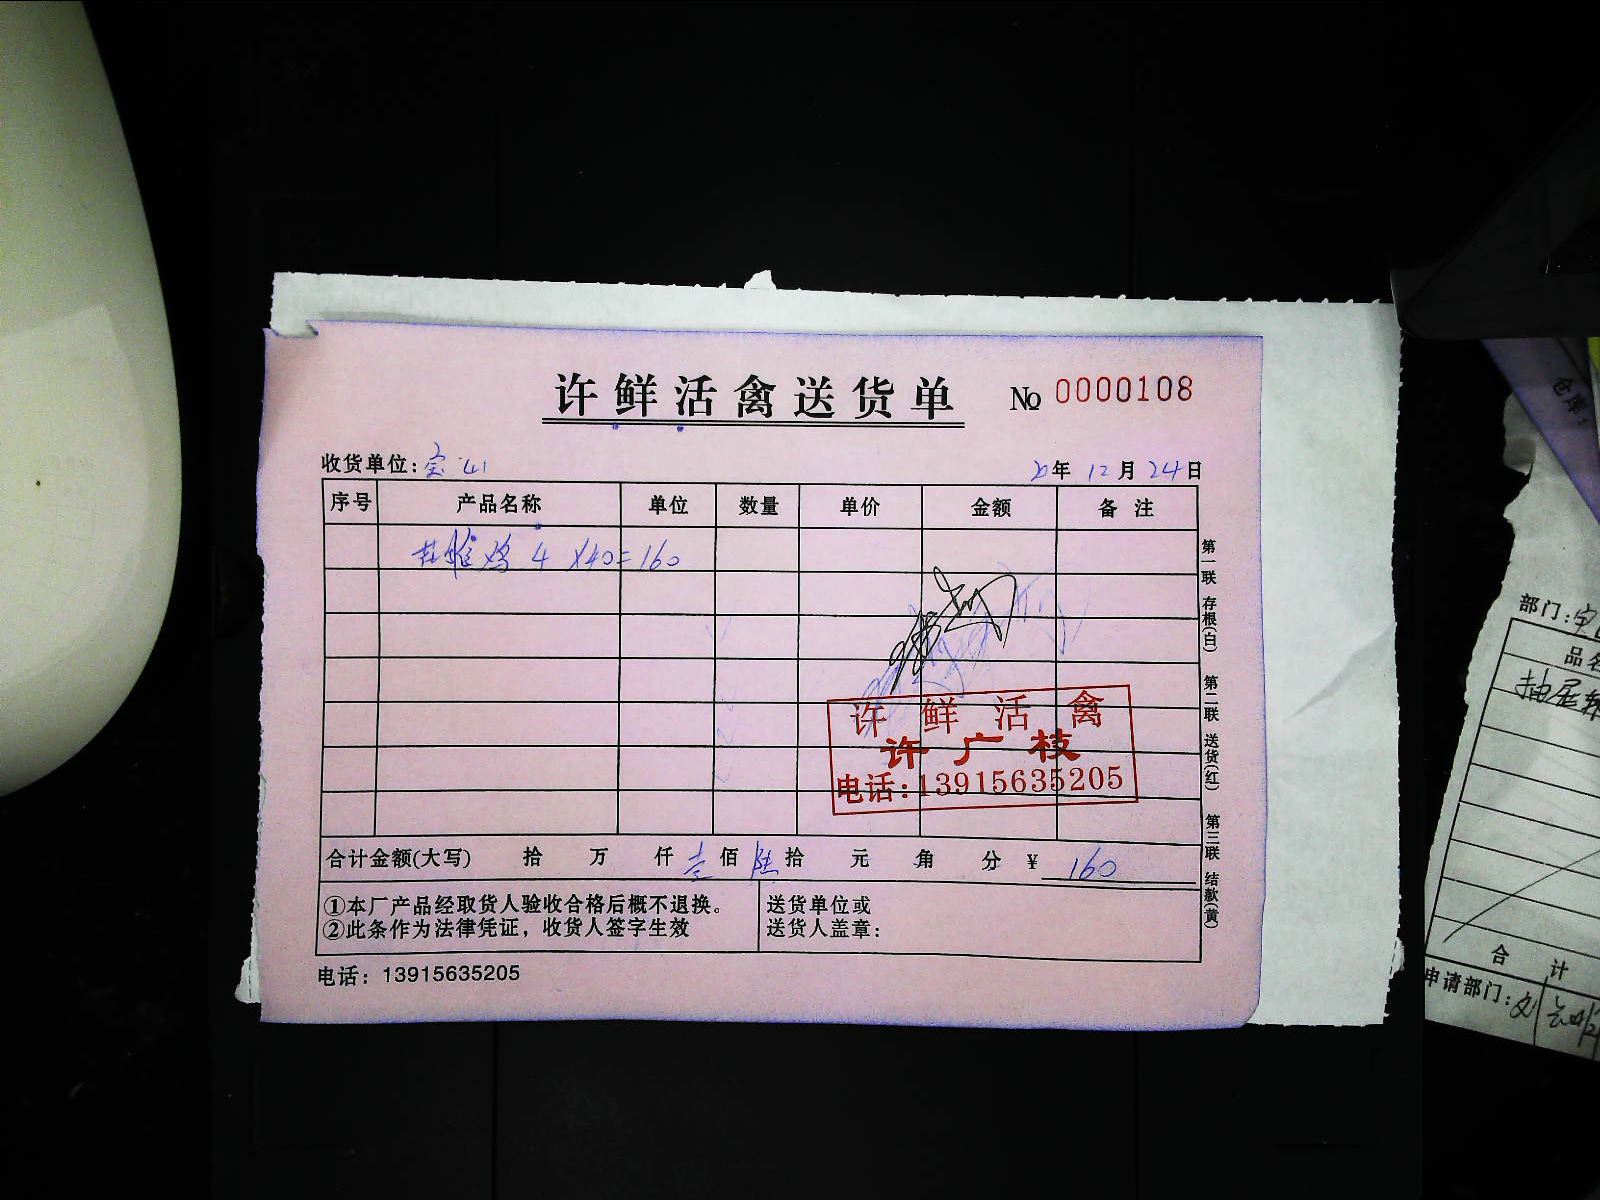 许鲜活禽送货单 № 0000108
收货单位: 宝山 20年 12月 24日
序号 产品名称 单位 数量 单价 金额 备注
鸡 4 ×40=160
许鲜活禽
许广枝
电话:13915635205
合计金额(大写) 拾 万 仟 壹佰 陆拾 元 角 分 ¥ 160
①本厂产品经取货人验收合格后概不退换。
②此条作为法律凭证，收货人签字生效
送货单位或
送货人盖章:
电话: 13915635205
第一联 存根(白) 第二联 送货(红) 第三联 结款(黄)
仓库:
部门:
品名
抽屉
合 计
申请部门: